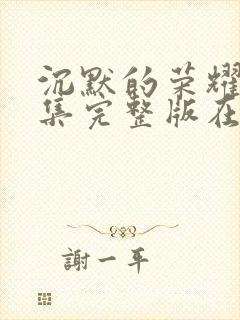 沉默的荣耀
集完整版在
謝一平